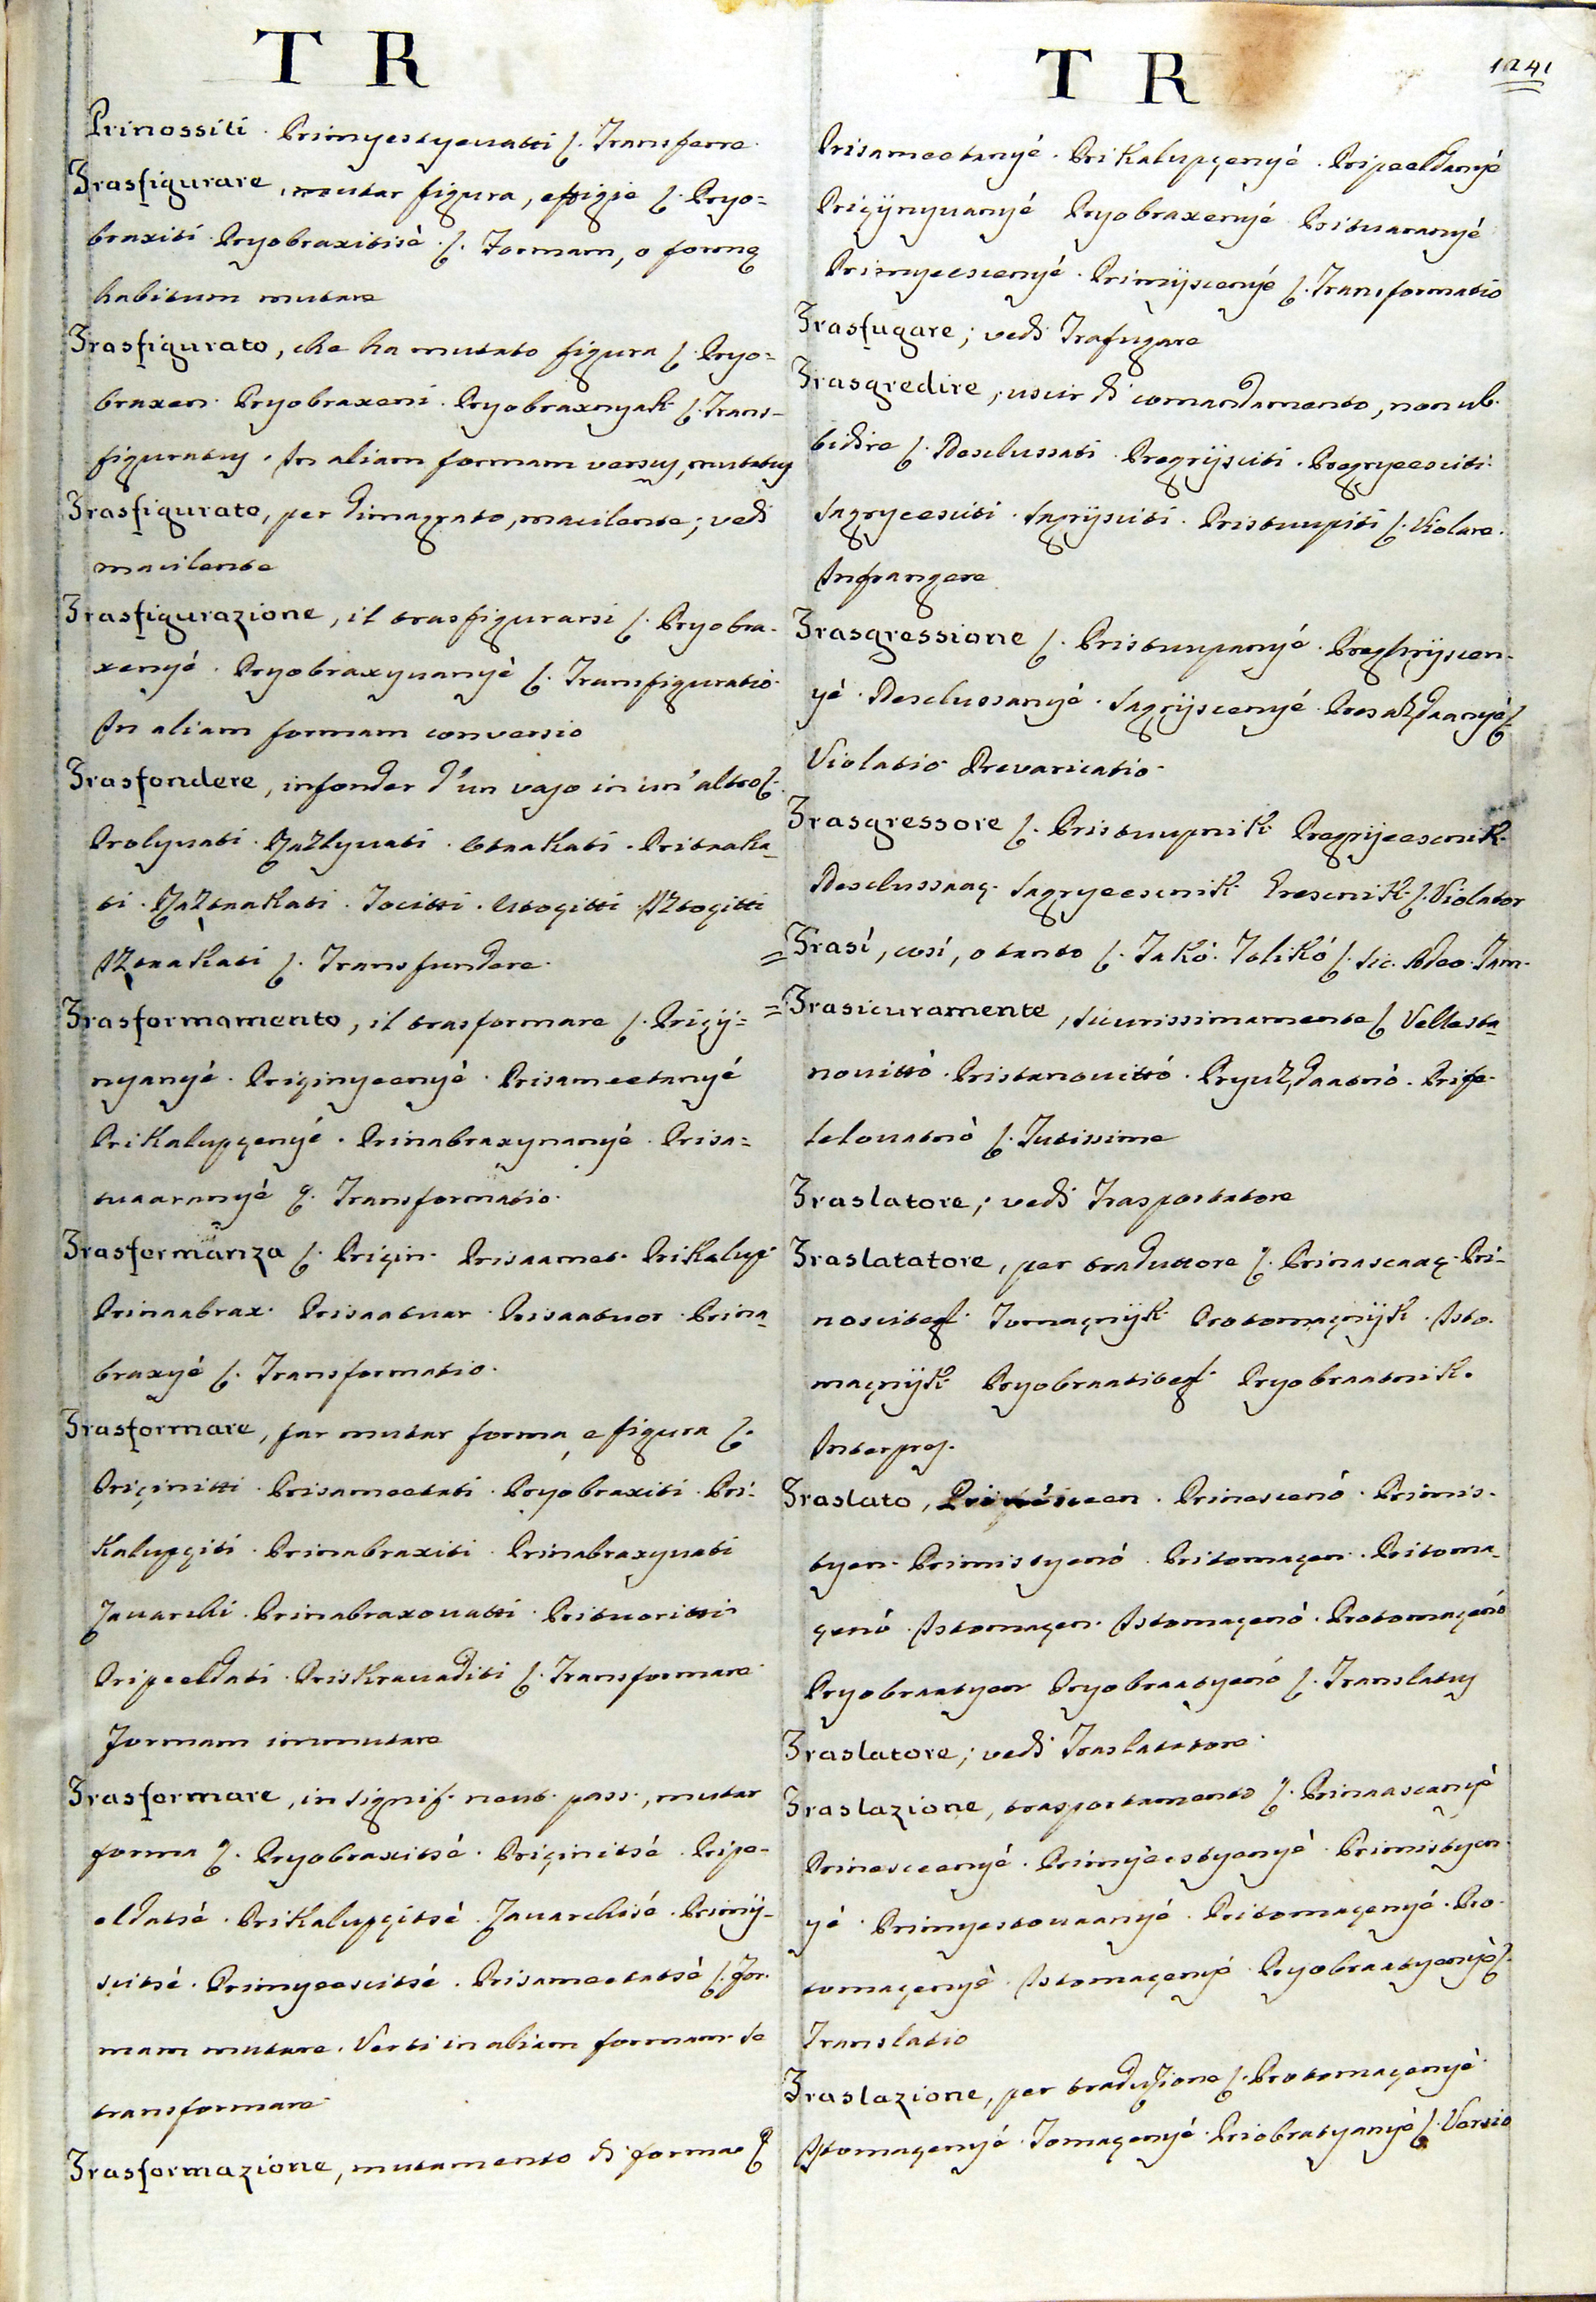 T R
Prinossiti. Primyestyevatti ſ. Transferre.
Trasfigurare, mutar figura, effigie ſ. Pryo=
braxiti. Pryobraxitisè. ſ. Formam, o formę
habitum mutare
Trasfigurato, che ha mutato figura ſ. Pryo=
braxen. Pryobraxeni. Pryobraxnyak. ſ. Trans-
figuratus. In aliam formam versus, mutatus
Trasfigurato, per dimagrato, macilente; vedi
macilente
Trasfigurazione, il trasfigurarsi ſ. Pryobra-
xenyé. Pryobraxyvanyè ſ. Transfiguratio.
In aliam formam conversio
Trasfondere, infonder d'un vaso in un'altro ſ.
Prolyvati. Razlyvati. Utaakati. Pritaaka-
ti. Raztaakati. Tocitti. Utoçitti. Iztoçitti
Iztaakati ſ. Transfundere.
Trasformamento, il trasformare ſ. Priçij=
nyanyè. Priçinyeenyè. Prisameetanyé
Prikalupçenyé. Prinabraxyvanyé. Prisa=
tvaaranyè ſ. Transformatio.
Trasformanza ſ. Priçin. Prisaamet. Prikalup.
Prinaabrax. Prisaatvar. Prisaatvor. Prina-
braxyé ſ. Transformatio.
Trasformare, far mutar forma, e figura ſ.
Priçinitti. Prisameetati. Pryobraxiti. Pri-
kalupçiti. Prinabraxiti. Prinabraxyvati
Zavarchi. Prinabraxovatti. Pritvoritti
Pripeeldati. Priskravaditi ſ. Transformare.
Formam immutare
Trasformare, in signif. neut. pass., mutar
forma ſ. Pryobraxitsé. Priçinitsé. Pripe-
eldatsè. Prikalupçitsè. Zavarchisé. Primij-
scitsé. Primyeescitsé. Prisameetatsè ſ. For.
mam mutare. Verti in aliam formam se
transformare
Trasformazione, mutamento di forma ſ
T R
1241
Prisameetanyé. Prikalupçenyé. Pripeeldanyé
Priçijnyvanyé Pryobraxenyé. Pritvaranyé
Primyeescenyé. Primijscenyé ſ. Transformatio
Trasfugare; vedi Trafugare
Trasgredire, uscir di comandamento, non ub-
bidire ſ. Desclussati. Pregrijsciti. Pregryeesciti.
Sagryeesciti. Sagrijsciti. Pristuupiti ſ. Violare.
Infrangere
Trasgressione ſ. Pristuupanyé. Preghrijscen-
yè. Desclussanyé. Sagrijscenyé. Presakdaanyè ſ.
Violatio. Prevaricatio.
Trasgressore ſ. Pristuupnik. Pregrijeescnik.
Desclussaaç. Sagryeescnik. Grescnik ſ. Violator
=Trasí, così, o tanto ſ. Takó. Tolikó ſ. Sic. Adeo. Tam.
=Trasicuramente, sicurissimamente ſ Vellesta-
novittò. Pristanovittó. Pryuzdaatnò. Prife-
telovatnò ſ. Tutissime
Traslatore; vedi Trasportatore
Traslatatore, per traduttore ſ. Prinascaaç. Pri-
noscitegl. Tomaçnijk. Protomaçnijk. Isto-
maçnijk. Pryobraatitegl. Pryobraatnik.
Interpres.
Traslato, Prinesceen. Prinescenò. Primis-
tyen. Primistyenò. Pritomaçen. Pritoma-
çenò. Istomaçen. Istomaçenò. Protomaçenò
Pryobraatyen Pryobraatyenó ſ. Translatus
Traslatore; vedi Traslatatore.
Traslazione, trasportamento ſ. Prinaascanyè
Prinesceenyé. Primyeestyenyè. Primistyen-
yè. Primyestovaanyé. Pritomaçenyé. Pro-
tomaçenyè. Istomaçenyé. Pryobraatyenyè ſ.
Translatio
Traslazione, per traduzione ſ. Protomaçenyè
Istomaçenyé. Tomaçenyé. Priobratyanyè ſ. Versio